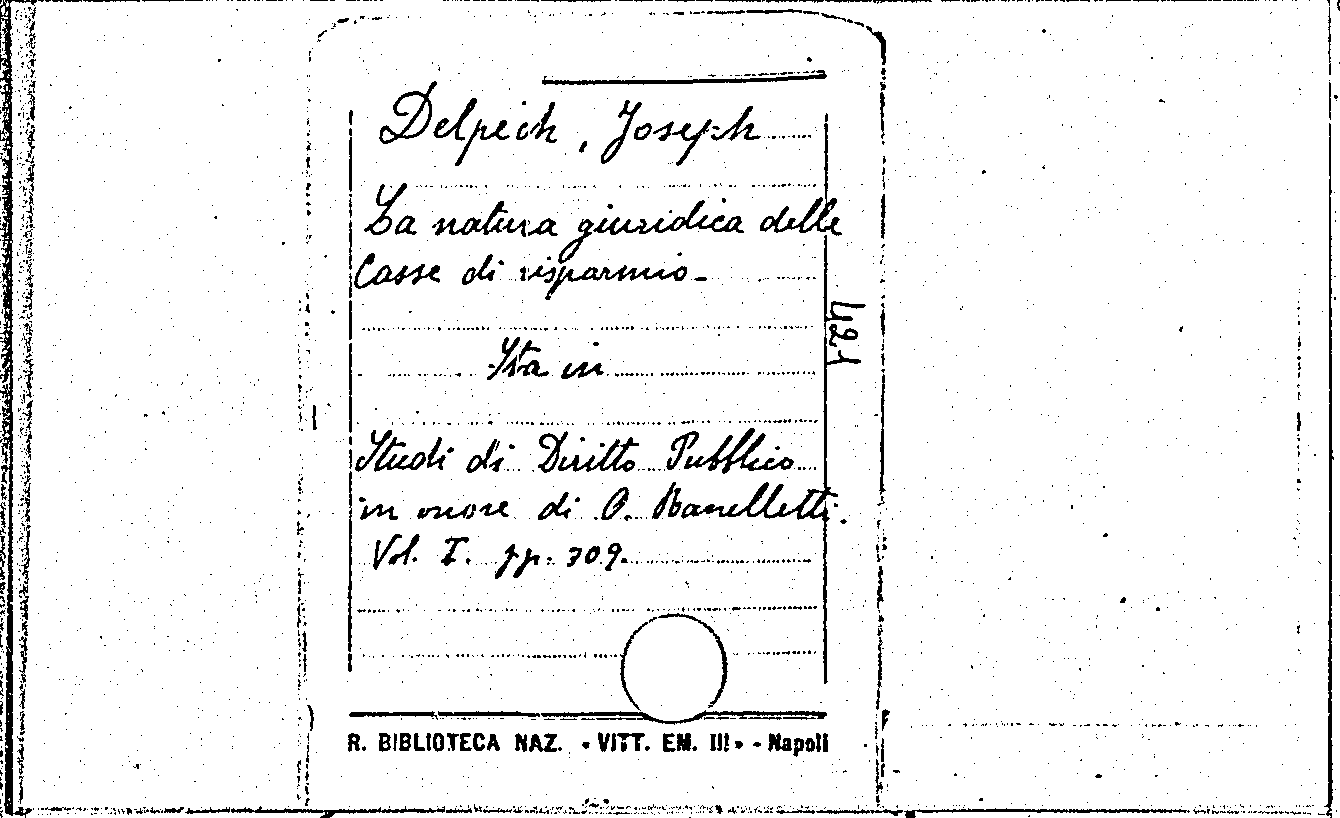 Delpech, Joseph
La natura giuridica delle
Casse di risparmio -
Sta in
Studi di Diritto Pubblico
in onore di O. Ranelletti.
Vol. I. pp. 309.
421
R. BIBLIOTECA NAZ. « VITT. EM. III » - Napoli